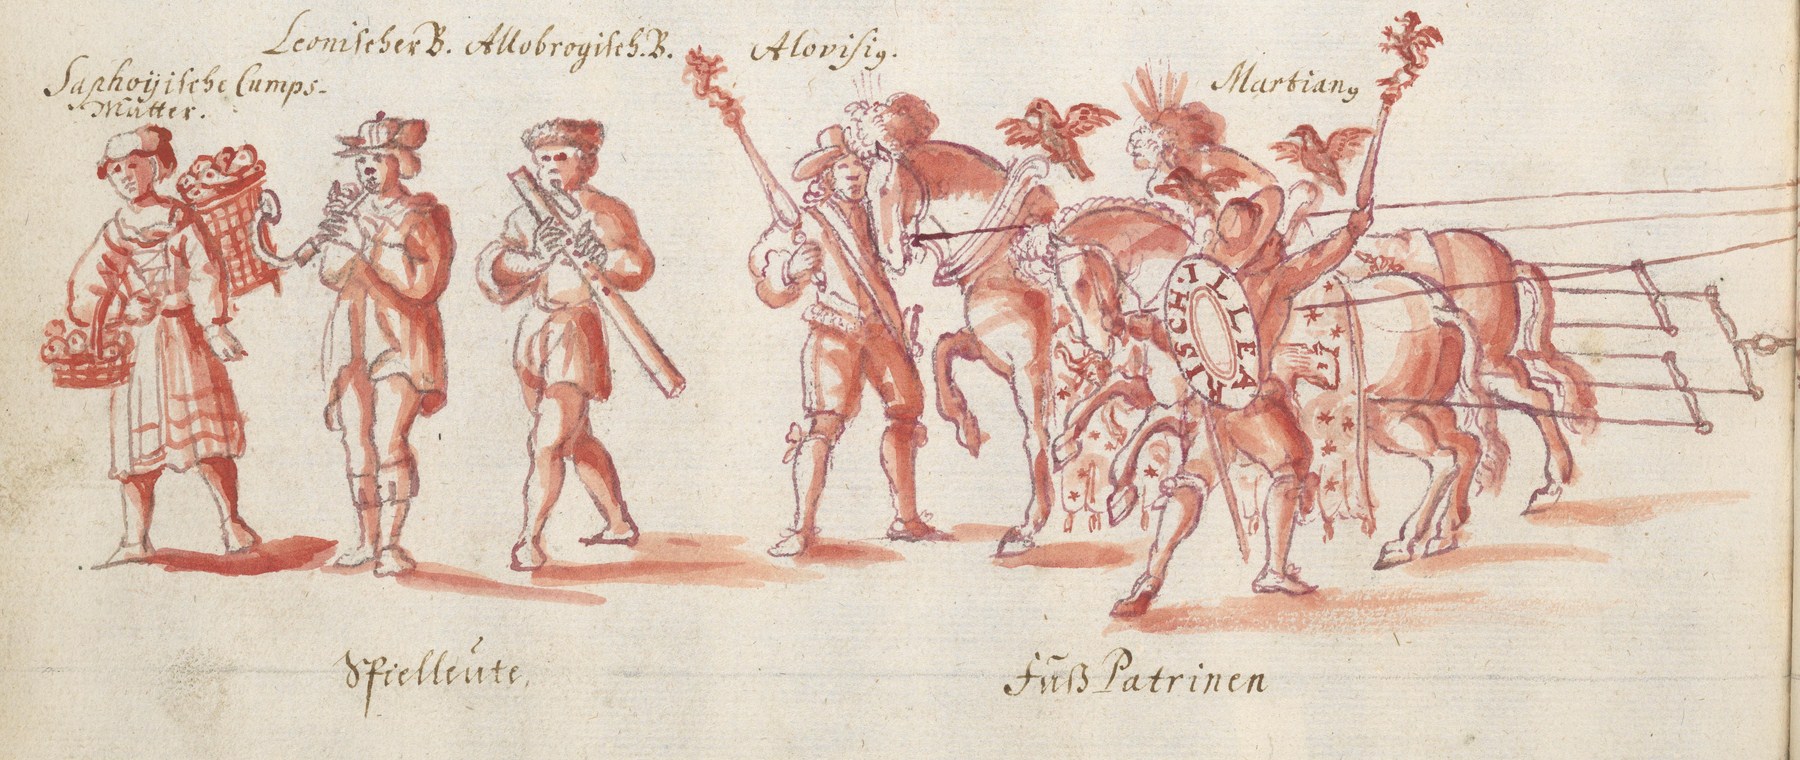 Saphoÿische Lumps-
Mütter.
Leonischer B.
Allobrogisch. B.
Alovisiꝯ.
Martianꝯ
ILLEA
RISCH.
Spielleute.
Fuß Patrinen